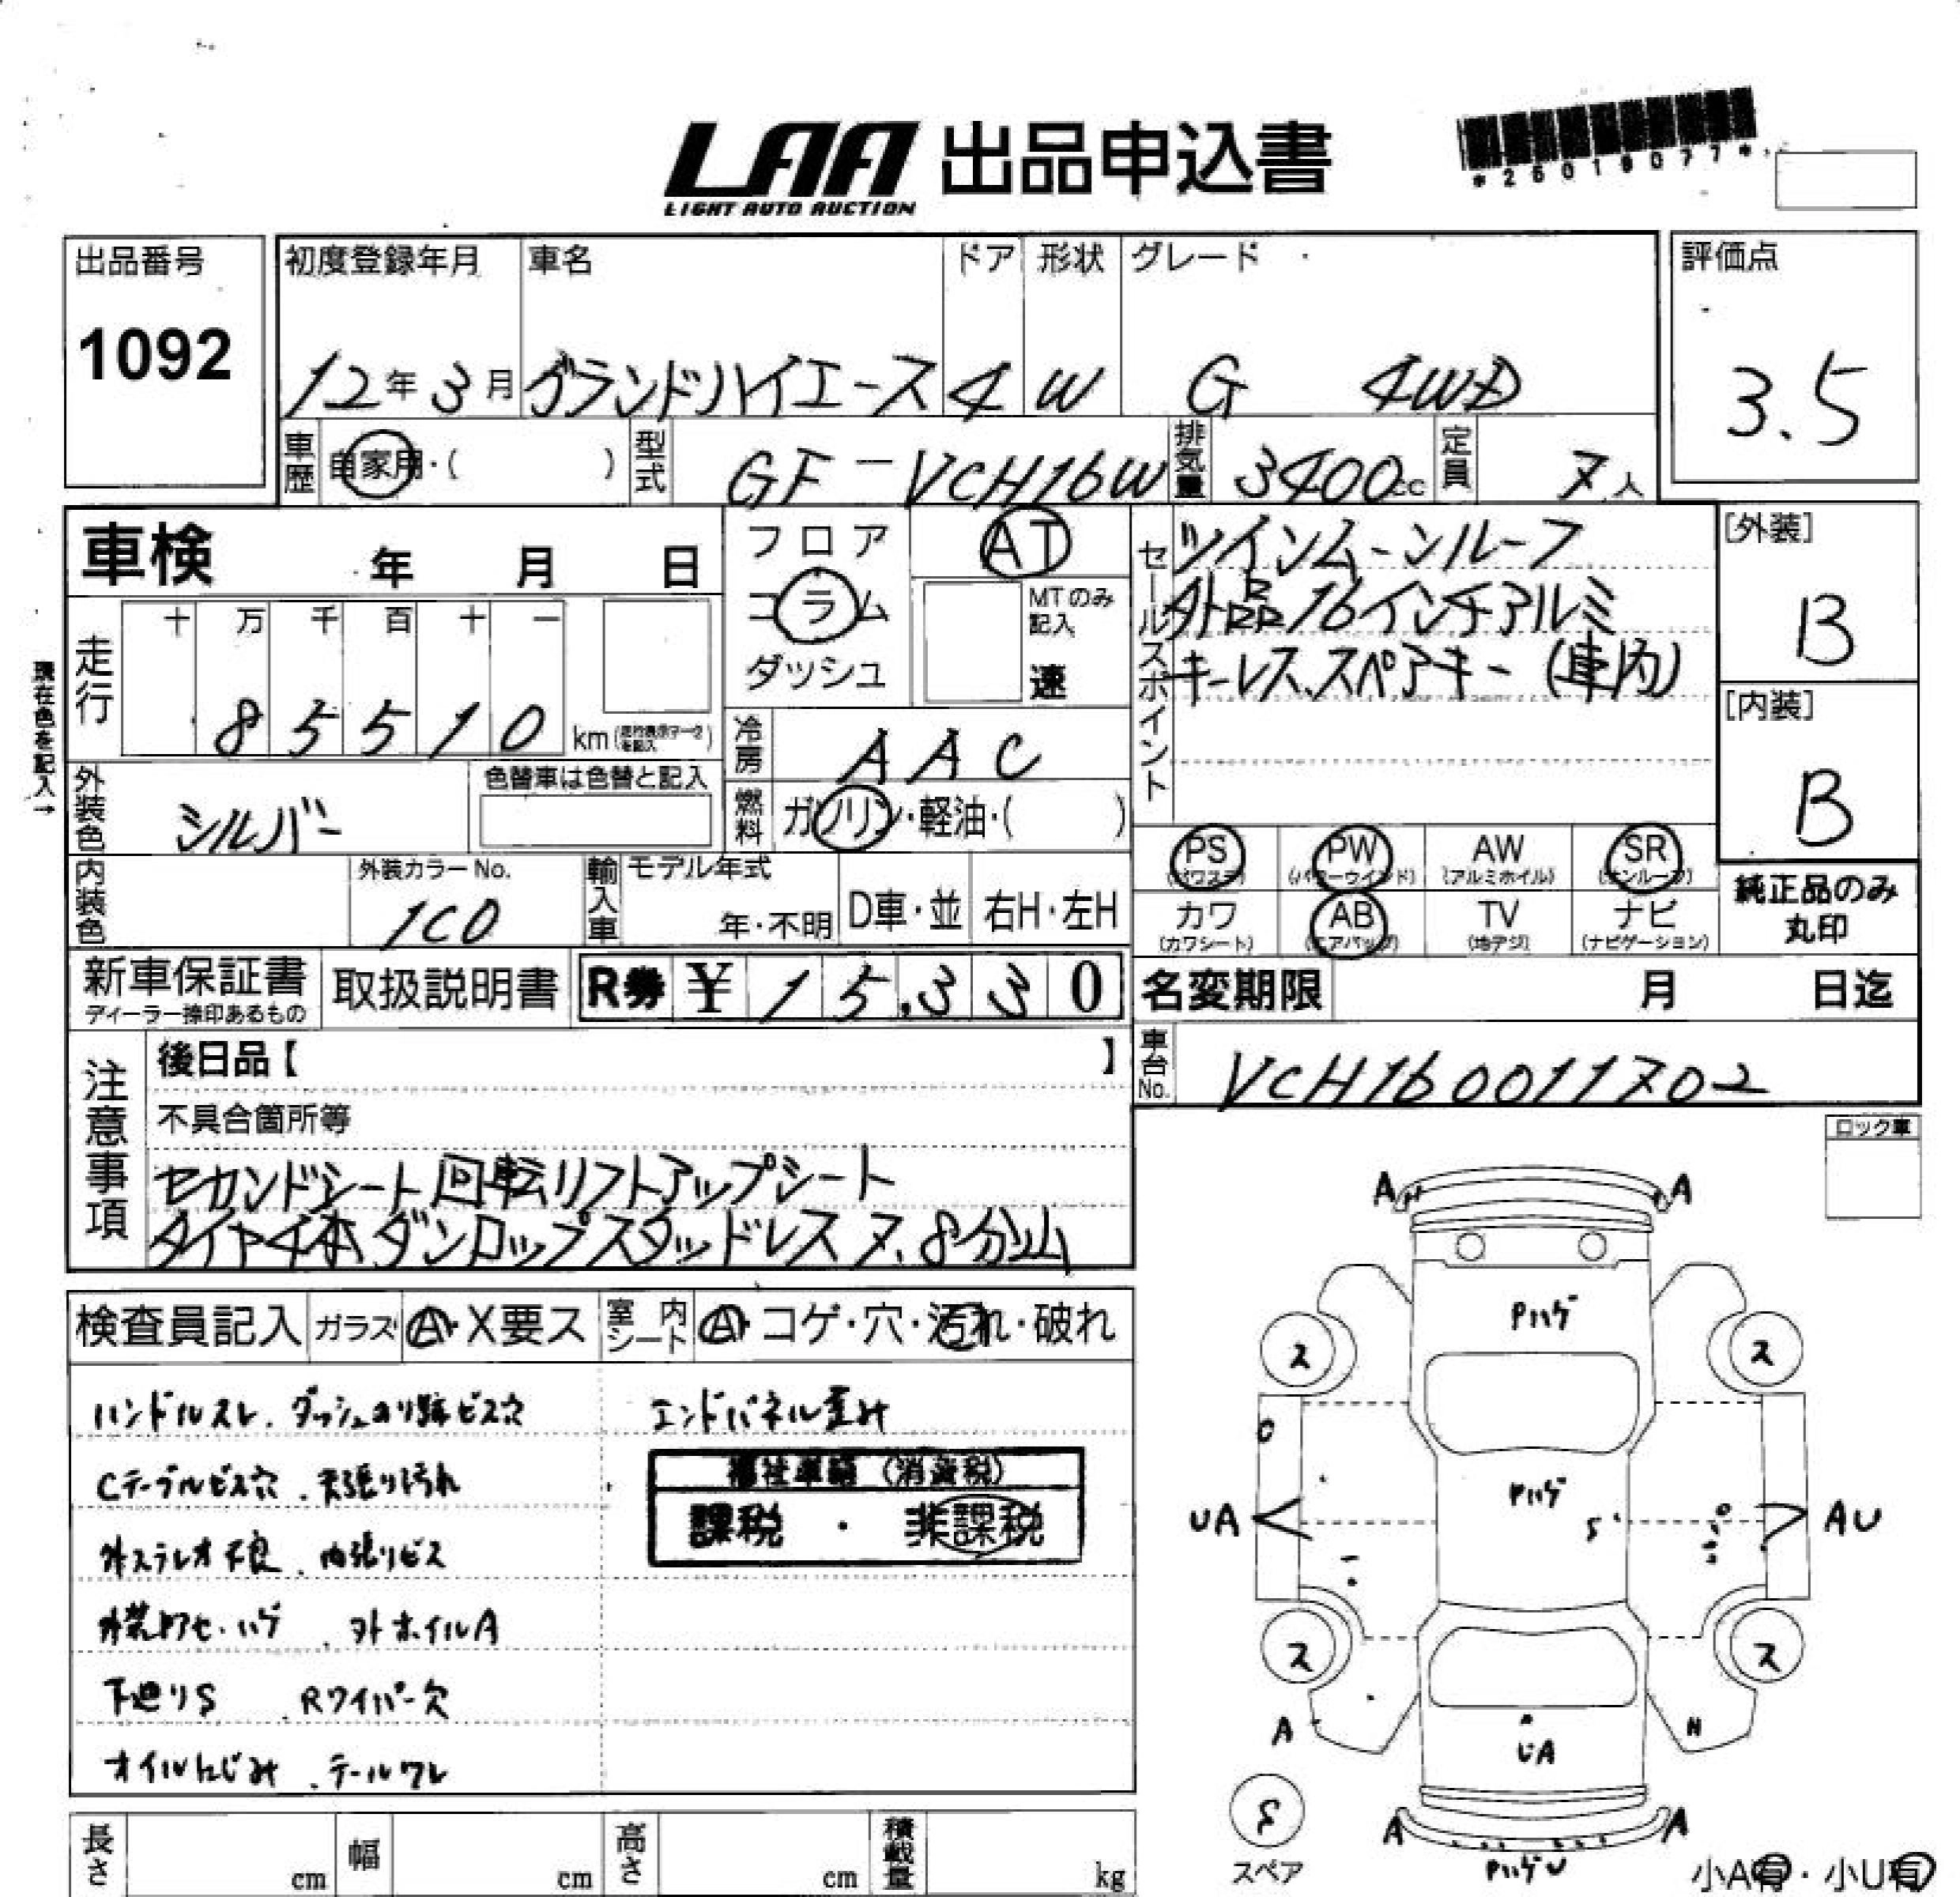 LAA 出品申込書
LIGHT AUTO AUCTION
*26019077*
出品番号
1092
初度登録年月
12年3月
車名
グランドハイエース
ドア
4
形状
W
グレード
G 4WD
評価点
3.5
車歴
自家用・( )
型式
GF-VCH16W
排気量
3400cc
定員
7人
車検 年 月 日
フロア
コラム
ダッシュ
AT
MTのみ記入
速
セールスポイント
ツインムーンルーフ
外品16インチアルミ
キーレス、スペアキー(車内)
[外装]
B
[内装]
B
現在色を記入→
走行
十 万 千 百 十 一
8 5 5 1 0 km
冷房
AAC
外装色
シルバー
色替車は色替と記入
燃料
ガソリン・軽油・( )
PS
(パワステ)
PW
(パワーウインド)
AW
(アルミホイル)
SR
(サンルーフ)
カワ
(カワシート)
AB
(エアバッグ)
TV
(地デジ)
ナビ
(ナビゲーション)
純正品のみ
丸印
内装色
外装カラーNo.
1C0
輸入車
モデル年式
年・不明
D車・並
右H・左H
新車保証書
ディーラー捺印あるもの
取扱説明書
R券 ¥ 15,330
名変期限 月 日迄
車台No.
VCH160011702
注意事項
後日品【 】
不具合箇所等
セカンドシート回転リフトアップシート
タイヤ4本ダンロップスタッドレス7、8分山
ロック車
検査員記入
ガラス
A・X要ス
室内シート
A・コゲ・穴・汚れ・破れ
ハンドルスレ、ダッシュのり跡ビス穴
エンドパネル歪み
Cテーブルビス穴、天張り汚れ
福祉車輌(消費税)
課税・非課税
外ステレオ不良、内張りビス
外装アセ・ハゲ、外ホイルA
下廻りS、Rワイパー欠
オイルにじみ、テールワレ
A A
Pハゲ
ス ス
Pハゲ
UA
S
AU
ス ス
A
UA
S
スペア
A A
PハゲU
小A有・小U有
長さ cm
幅 cm
高さ cm
積載量 kg